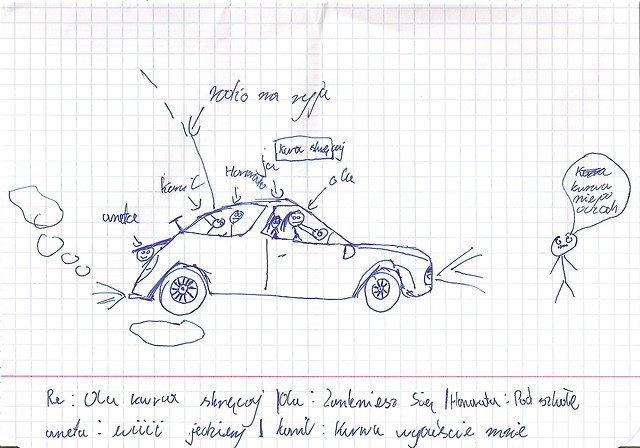 radio na ryja
Kamil
Honorata
ja
kurwa skręcaj
ola
aneta
kurwa
nie po
oczach
Ola kurwa skręcaj |Ola: Zamkniesz się |Honorata: Pod szkołę
aneta: wiiii jedziemy | kamil: Kurwa wypuście mnie